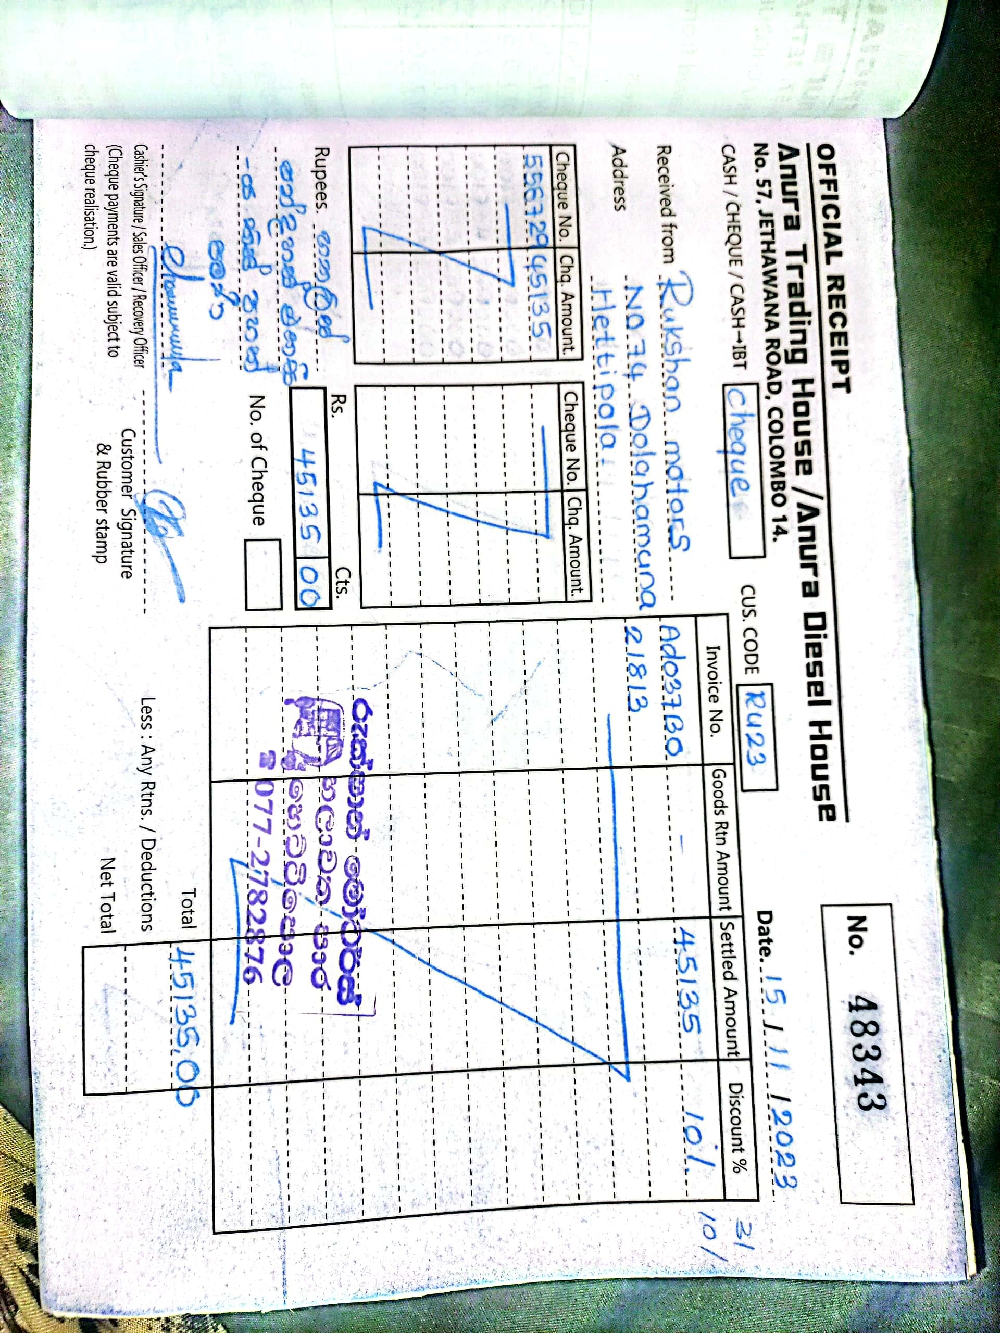 OFFICIAL RECEIPT
Anura Trading House / Anura Diesel House
No. 57, JETHAWANA ROAD, COLOMBO 14.
No. 48343
CASH / CHEQUE / CASH→IBT Cheque
CUS. CODE RU23
Date. 15 / 11 / 2023
Received from Rukshan motors
Address No 74. Dolahamuna
Hettipola.
Cheque No. Chq. Amount.
556729 45135
Cheque No. Chq. Amount.
Invoice No. Goods Rtn Amount Settled Amount Discount %
Ado37130 - 45135 10%
21813
31/
10/
Rupees.
Rs. Cts.
45135 00
No. of Cheque
රුක්ෂාන් මෝටර්ස්
හෙට්ටිපොල
077-2782876
Total 45135.00
Less : Any Rtns. / Deductions
Net Total
Cashier's Signature / Sales Officer / Recovery Officer
(Cheque payments are valid subject to
cheque realisation.)
Customer Signature
& Rubber stamp